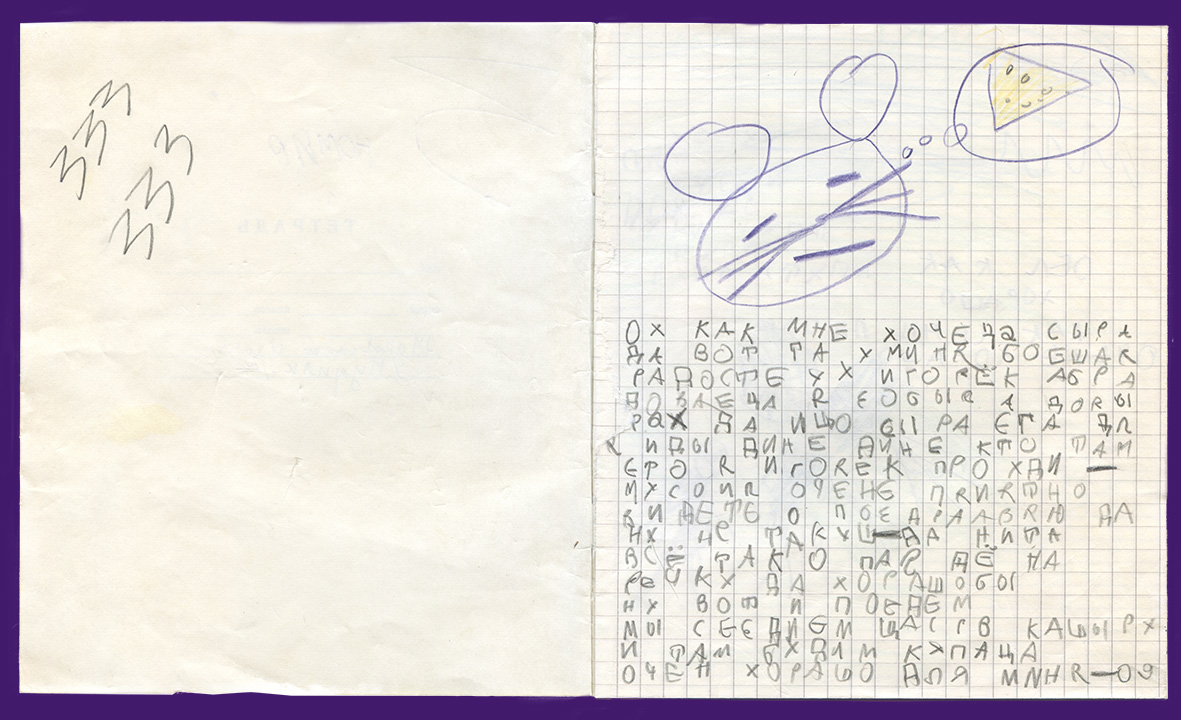 ОХ КАК МНЕ ХОЧЕЦА СЫРА
ДА ВОТ ТА У МИНЯ БОЕШАЯ
РАДОСТЕ У ИГОРЁК АБРА
ДОВАЕЦА Я ЕОБЫ А ДОЯЫ
РАХ ДА ИЩО СЫРА ЕГА ДЛ
Я ИДЫ ДИНЕ ДИНЕ КТО ТАМ
ЕТО Я ИГОREК ПРО ХДИ
МУСОИЯ ОЧЕНЕ ПRИЯТНО
ВИДЕТЕ О ПОЕДРААВЯЮ ДА
НУ НС ТАКУШ ДА НИТА
ВСЁ ТАК О ПАР ДЁ НА
РЕЧКУ ДА ХОРАШОБЫ
НУ ВОТ И ПОЕДЕМ
МЫ СЕЕДИЕМ ЩАСГВ КАШЫРУ
И ТАМ БУДИМ КУПАЦА
ОЧЕН ХОРАШО ДЛЯ МNНЯ